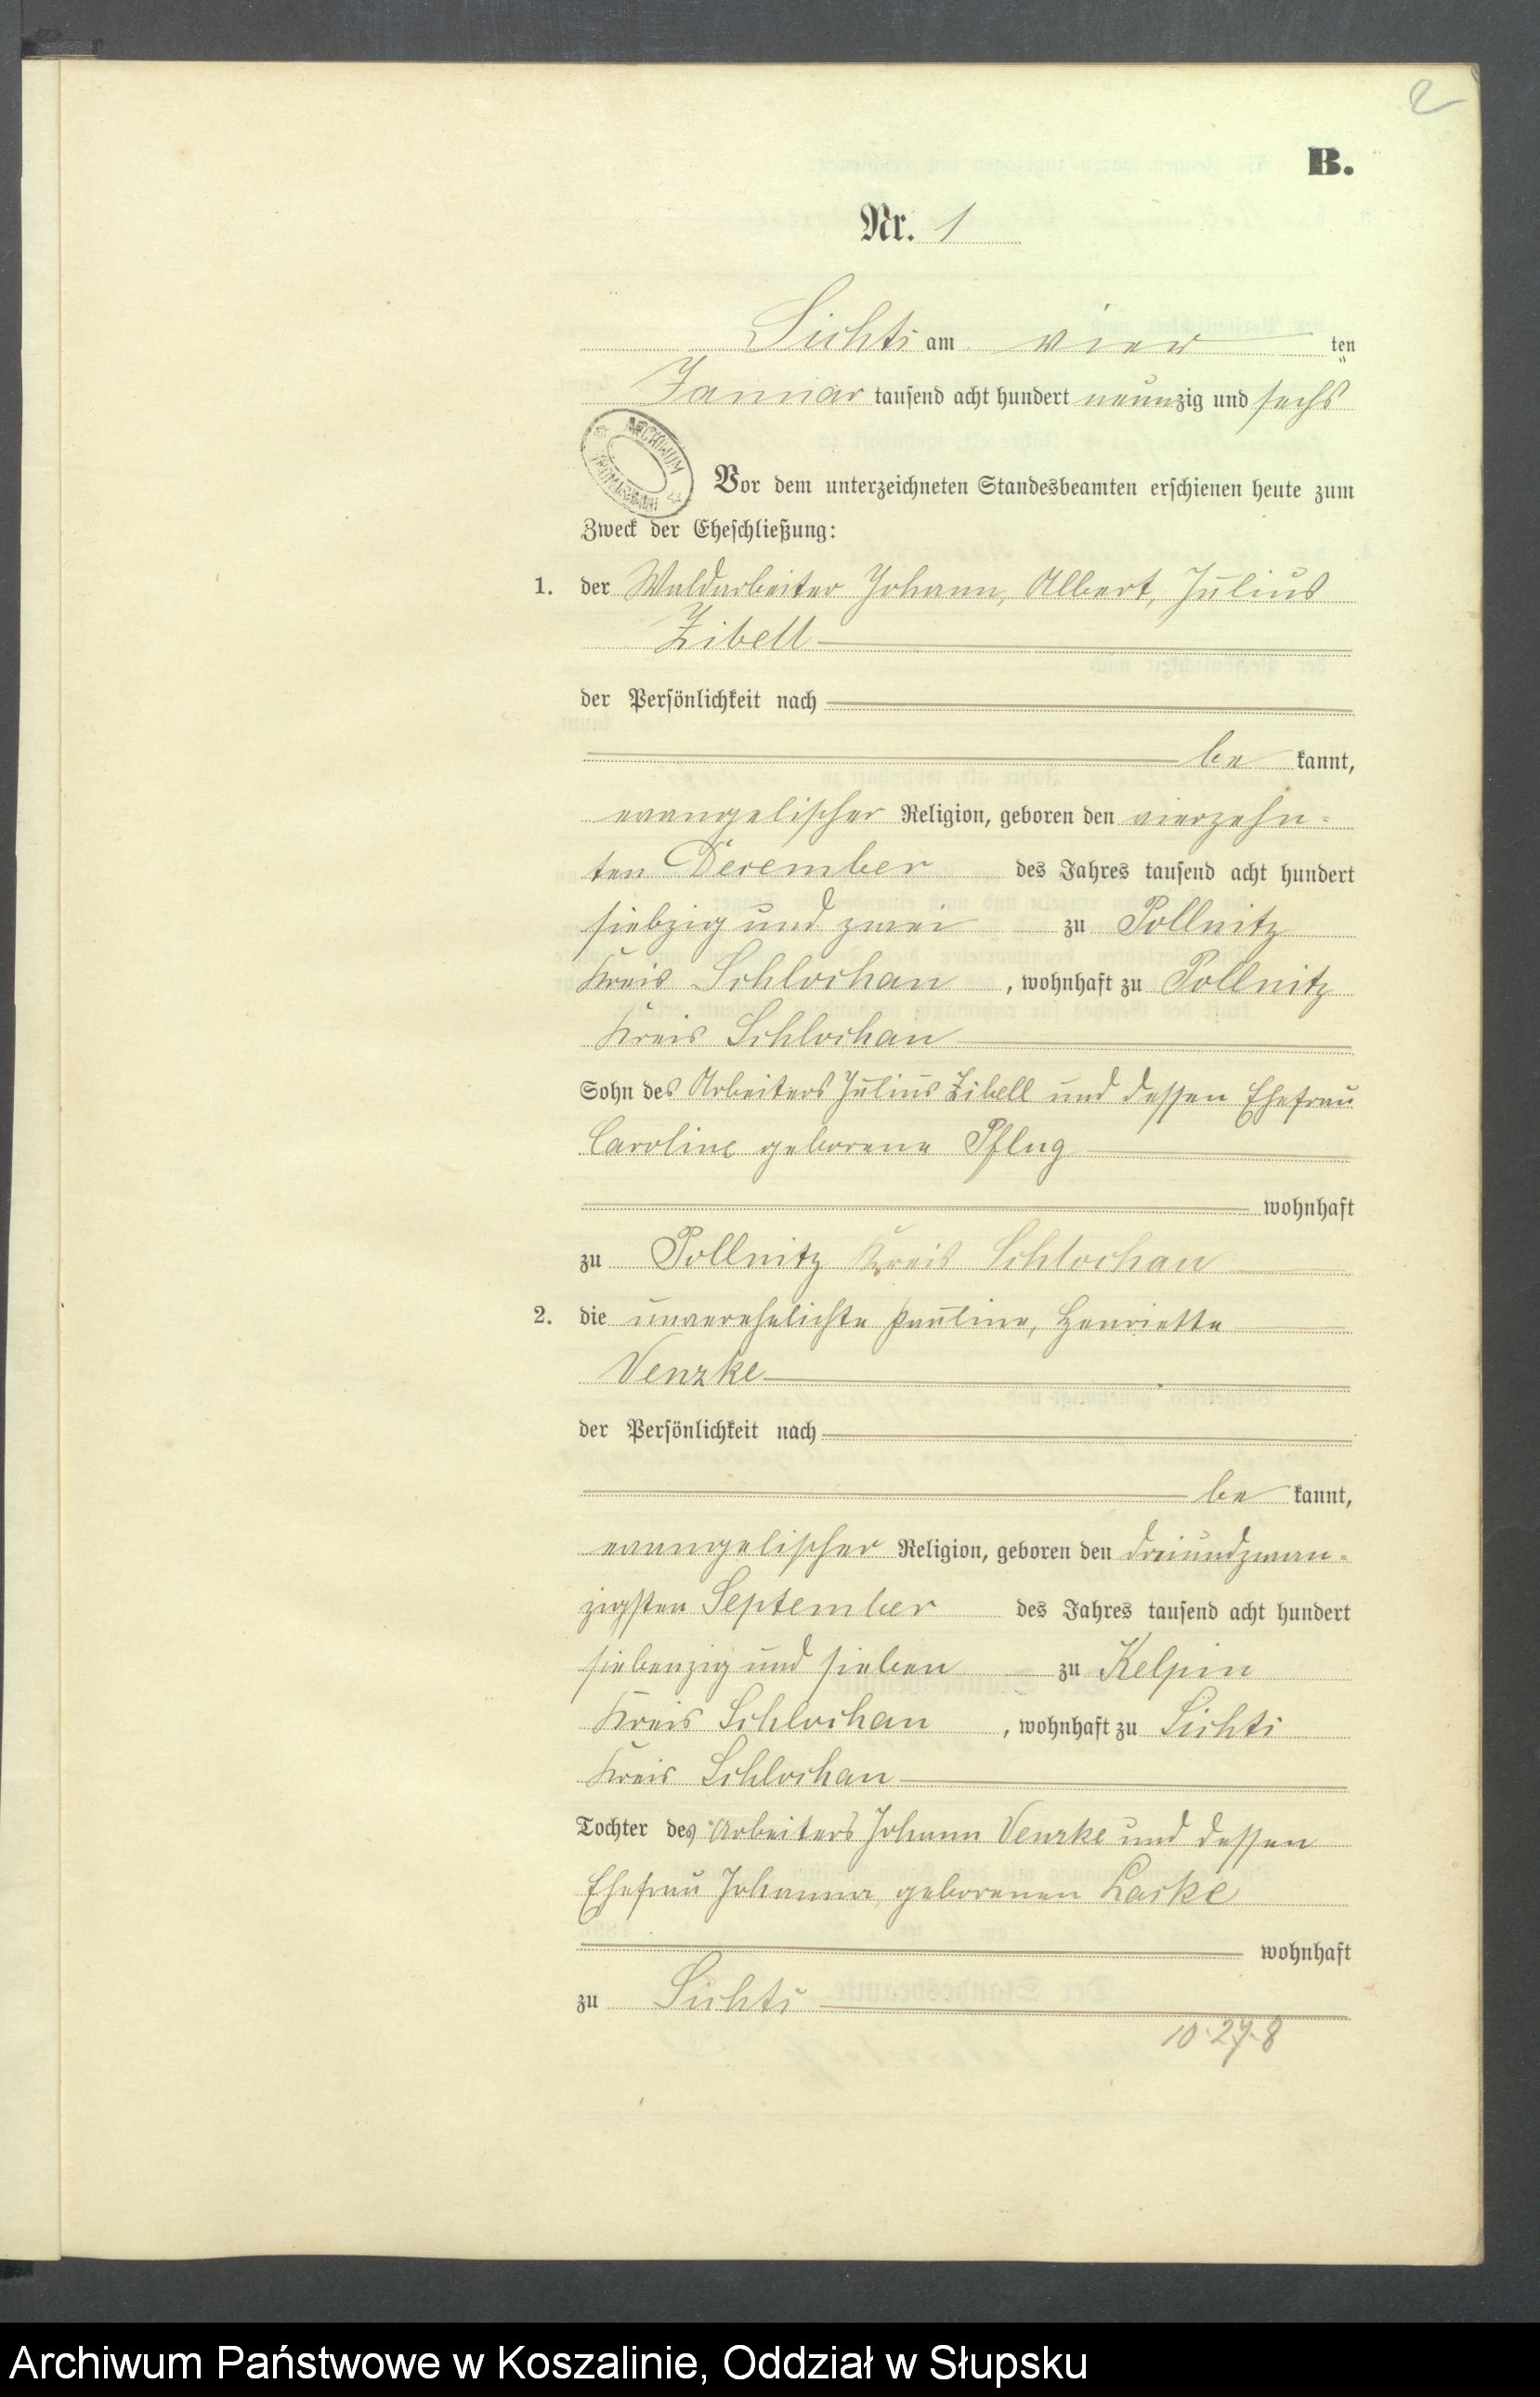 2
B.
Nr. 1
Sichts am vier ten
Januar tausend acht hundert neunzig und sechs
ARCHIWUM
Vor dem unterzeichneten Standesbeamten erschienen heute zum
Zweck der Eheschließung:
1. der Waldarbeiter Johann, Albert, Julius
Zibell
der Persönlichkeit nach
be kannt,
evangelischer Religion, geboren den vierzehn-
ten December des Jahres tausend acht hundert
siebzig und zwei zu Pollnitz
Kreis Schlochau, wohnhaft zu Pollnitz
Kreis Schlochau
Sohn des Arbeiters Julius Zibell und dessen Ehefrau
Caroline geborene Pflug
wohnhaft
zu Pollnitz Kreis Schlochau
2. die unverehelichte Pauline, Henriette
Venzke
der Persönlichkeit nach
be kannt,
evangelischer Religion, geboren den dreiundzwan-
zigsten September des Jahres tausend acht hundert
siebenzig und sieben zu Kelpin
Kreis Schlochau, wohnhaft zu Sichts
Kreis Schlochau
Tochter des Arbeiters Johann Venzke und dessen
Ehefrau Johanna geborenen Laske
wohnhaft
zu Sichts
10.27.8
Archiwum Państwowe w Koszalinie, Oddział w Słupsku